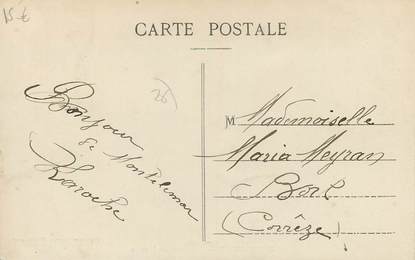 15 €
CARTE POSTALE
26
Bonjour
de Montélimar
M Mademoiselle
Maria Meyran
Bort
(Corrèze)